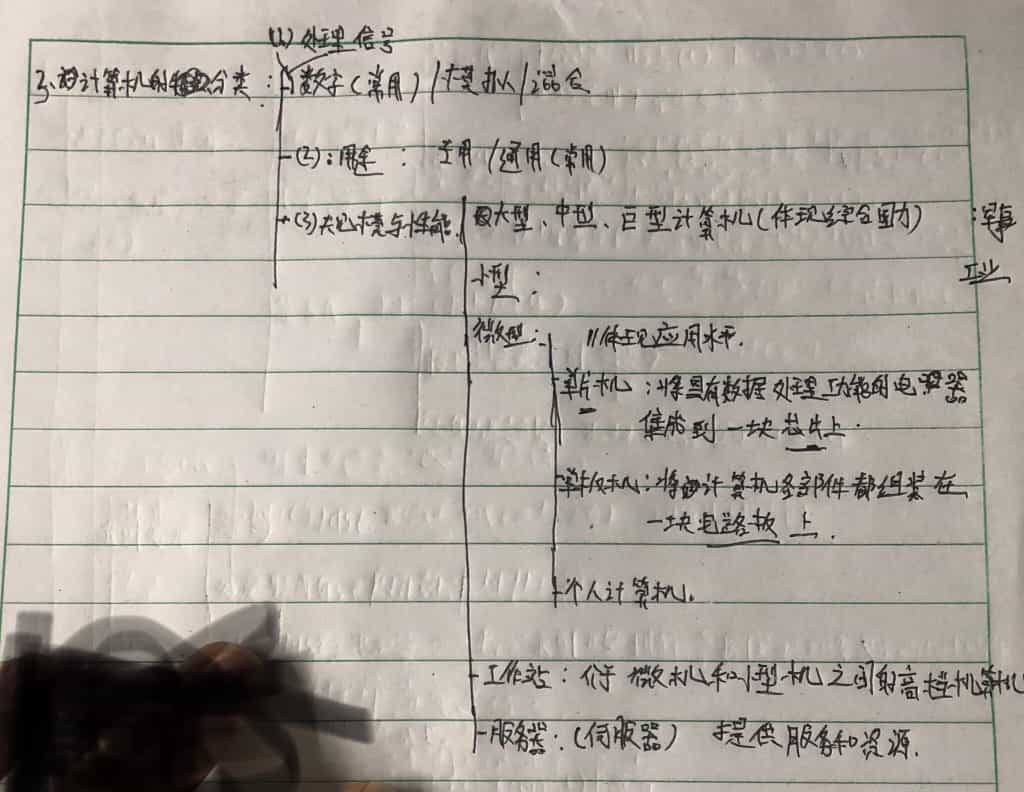 (1) 处理信号
3. 计算机的分类：数字(常用)/模拟/混合
(2)：用途：专用/通用(常用)
(3) 规模与性能
大型、中型、巨型计算机(体现综合国力)：军事
工业
小型：
微型： //体现应用水平.
单片机：将具有数据处理功能的电器
集成到一块芯片上.
单板机：将计算机各部件都组装在
一块电路板上.
个人计算机.
工作站：介于微机和小型机之间的高档机算机
服务器：(伺服器) 提供服务和资源.